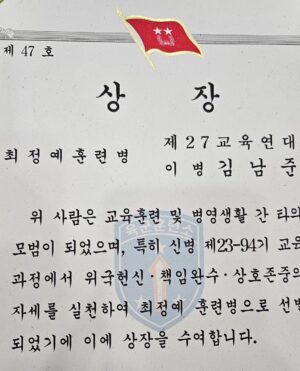 제 47 호
상 장
제27교육연대
최정예훈련병
이 병 김 남 준
위 사람은 교육훈련 및 병영생활 간 타의
모범이 되었으며, 특히 신병 제23-94기 교육
과정에서 위국헌신·책임완수·상호존중의
자세를 실천하여 최정예 훈련병으로 선발
되었기에 이에 상장을 수여합니다.
육군훈련소